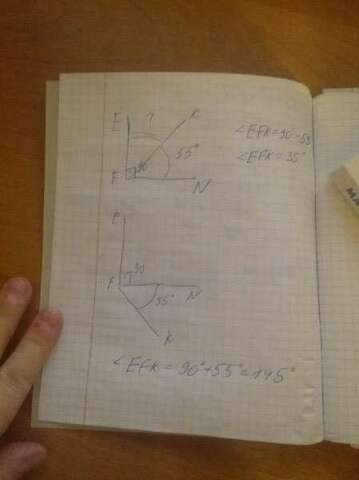 E ? K
∠EFK=90°-55
55°
∠EFK=35°
90
F N
E
90
F N
55°
K
∠EFK = 90°+55°=145°